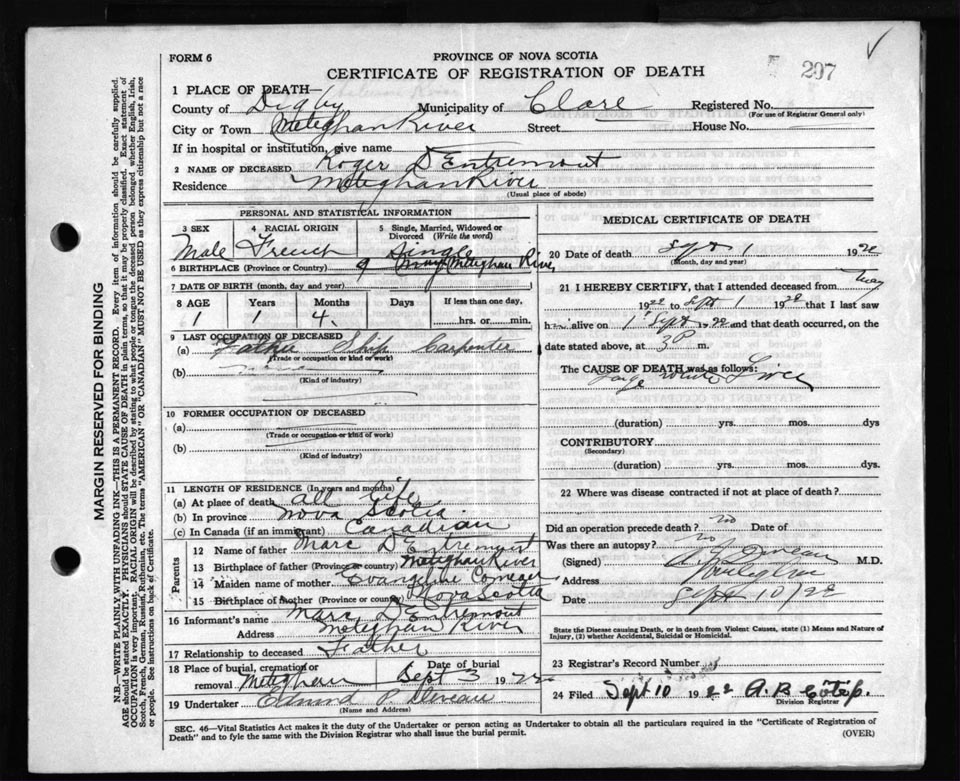 FORM 6
PROVINCE OF NOVA SCOTIA
CERTIFICATE OF REGISTRATION OF DEATH
207
1 PLACE OF DEATH—
County of Digby Municipality of Clare Registered No.
(For use of Registrar General only)
City or Town Meteghan River Street House No.
If in hospital or institution, give name
2 NAME OF DECEASED Roger D Entremont
Residence Meteghan River
(Usual place of abode)
PERSONAL AND STATISTICAL INFORMATION
3 SEX 4 RACIAL ORIGIN 5 Single, Married, Widowed or Divorced (Write the word)
Male French Single
6 BIRTHPLACE (Province or Country) Meteghan River
7 DATE OF BIRTH (month, day and year) 9 May
8 AGE Years Months Days If less than one day,
1 1 4 hrs. or min.
9 LAST OCCUPATION OF DECEASED
(a) Father Ship Carpenter
(Trade or occupation or kind of work)
(b)
(Kind of industry)
10 FORMER OCCUPATION OF DECEASED
(a)
(Trade or occupation or kind of work)
(b)
(Kind of industry)
11 LENGTH OF RESIDENCE (In years and months)
(a) At place of death all life
(b) In province Nova Scotia
(c) In Canada (if an immigrant) Canadian
Parents
12 Name of father Marc D Entremont
13 Birthplace of father (Province or country) Meteghan River
14 Maiden name of mother Evangeline Comeau
15 Birthplace of mother (Province or country) Nova Scotia
16 Informant's name Marc D Entremont
Address Meteghan River
17 Relationship to deceased Father
18 Place of burial, cremation or removal Meteghan Date of burial Sept 3 1922
19 Undertaker Edmund P. Deveau
(Name and Address)
MEDICAL CERTIFICATE OF DEATH
20 Date of death Sept 1 1922
(Month, day and year)
21 I HEREBY CERTIFY, that I attended deceased from May
1922 to Sept 1 1922 that I last saw
h alive on 1 Sept 1922 and that death occurred, on
date stated above, at 3 m.
The CAUSE OF DEATH was as follows:
Large white Liver
(duration) yrs. mos. dys
CONTRIBUTORY
(Secondary)
(duration) yrs. mos. dys.
22 Where was disease contracted if not at place of death?
Did an operation precede death? no Date of
Was there an autopsy? no
(Signed) Deveau M.D.
Address
Date Sept 10/22
State the Disease causing Death, or in death from Violent Causes, state (1) Means and Nature of Injury, (2) whether Accidental, Suicidal or Homicidal.
23 Registrar's Record Number
24 Filed Sept 10 1922 A. B.
Division Registrar
SEC. 46—Vital Statistics Act makes it the duty of the Undertaker or person acting as Undertaker to obtain all the particulars required in the "Certificate of Registration of
Death" and to fyle the same with the Division Registrar who shall issue the burial permit.
(OVER)
MARGIN RESERVED FOR BINDING
N.B.—WRITE PLAINLY, WITH UNFADING INK—THIS IS A PERMANENT RECORD. Every item of information should be carefully supplied.
AGE should be stated EXACTLY. PHYSICIANS should STATE CAUSE OF DEATH in plain terms, so that it may be properly classified. Exact statement of
OCCUPATION is very important. RACIAL ORIGIN will be described by stating to what people or tongue the deceased person belonged whether English, Irish,
Scotch, French, German, Russian, Ruthenian, etc. The terms "AMERICAN" OR "CANADIAN" MUST NOT BE USED as they express citizenship but not a race
or people. See instructions on back of Certificate.